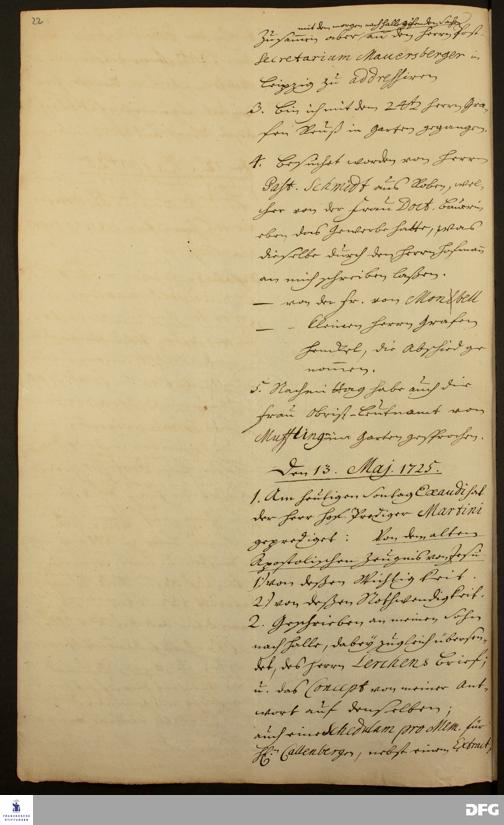 22
mit dem morgen nach Halle gehenden Sohn
Zusammen aber an den Herrn Post-
Secretarium Mauersberger in
Leipzig zu addressiren
3. bin ich mit dem 24st. Herrn Gra-
fen Reuß in garten gegangen.
4. besuchet worden von Herrn
Past. Schmidt aus Roben, wel-
cher von der Frau Doct.
eben das Gewerbe hatte, was
dieselbe durch den Herrn Hofmann
an mich schreiben lassen.
— von der Fr. von Monsbell
— - kleinen Herrn Grafen
Henckel, die Abschied ge
nommen.
5. Nachmittag habe auch die
Frau Obrist-Leutnant von
Muffling im Garten gesprochen.
Den 13. Maj. 1725.
1. Am heutigen Sontag Exaudi hat
der Herr Hof Prediger Martini
geprediget: Von dem alten
Apostolischen Zeugnis von Jesu
1) von deßen Wichtigkeit.
2) von deßen Nothwendigkeit.
2. Geschrieben an meinen Sohn
nach Halle, dabey zugleich übersen-
det, des Herrn Lerchens brief;
u. das Concept von meiner Ant-
wort auf denselben;
auch eine schedulam pro Mem. für
H. Callenbergen, nebst einem Extract
FRANCKESCHE
STIFTUNGEN
DFG